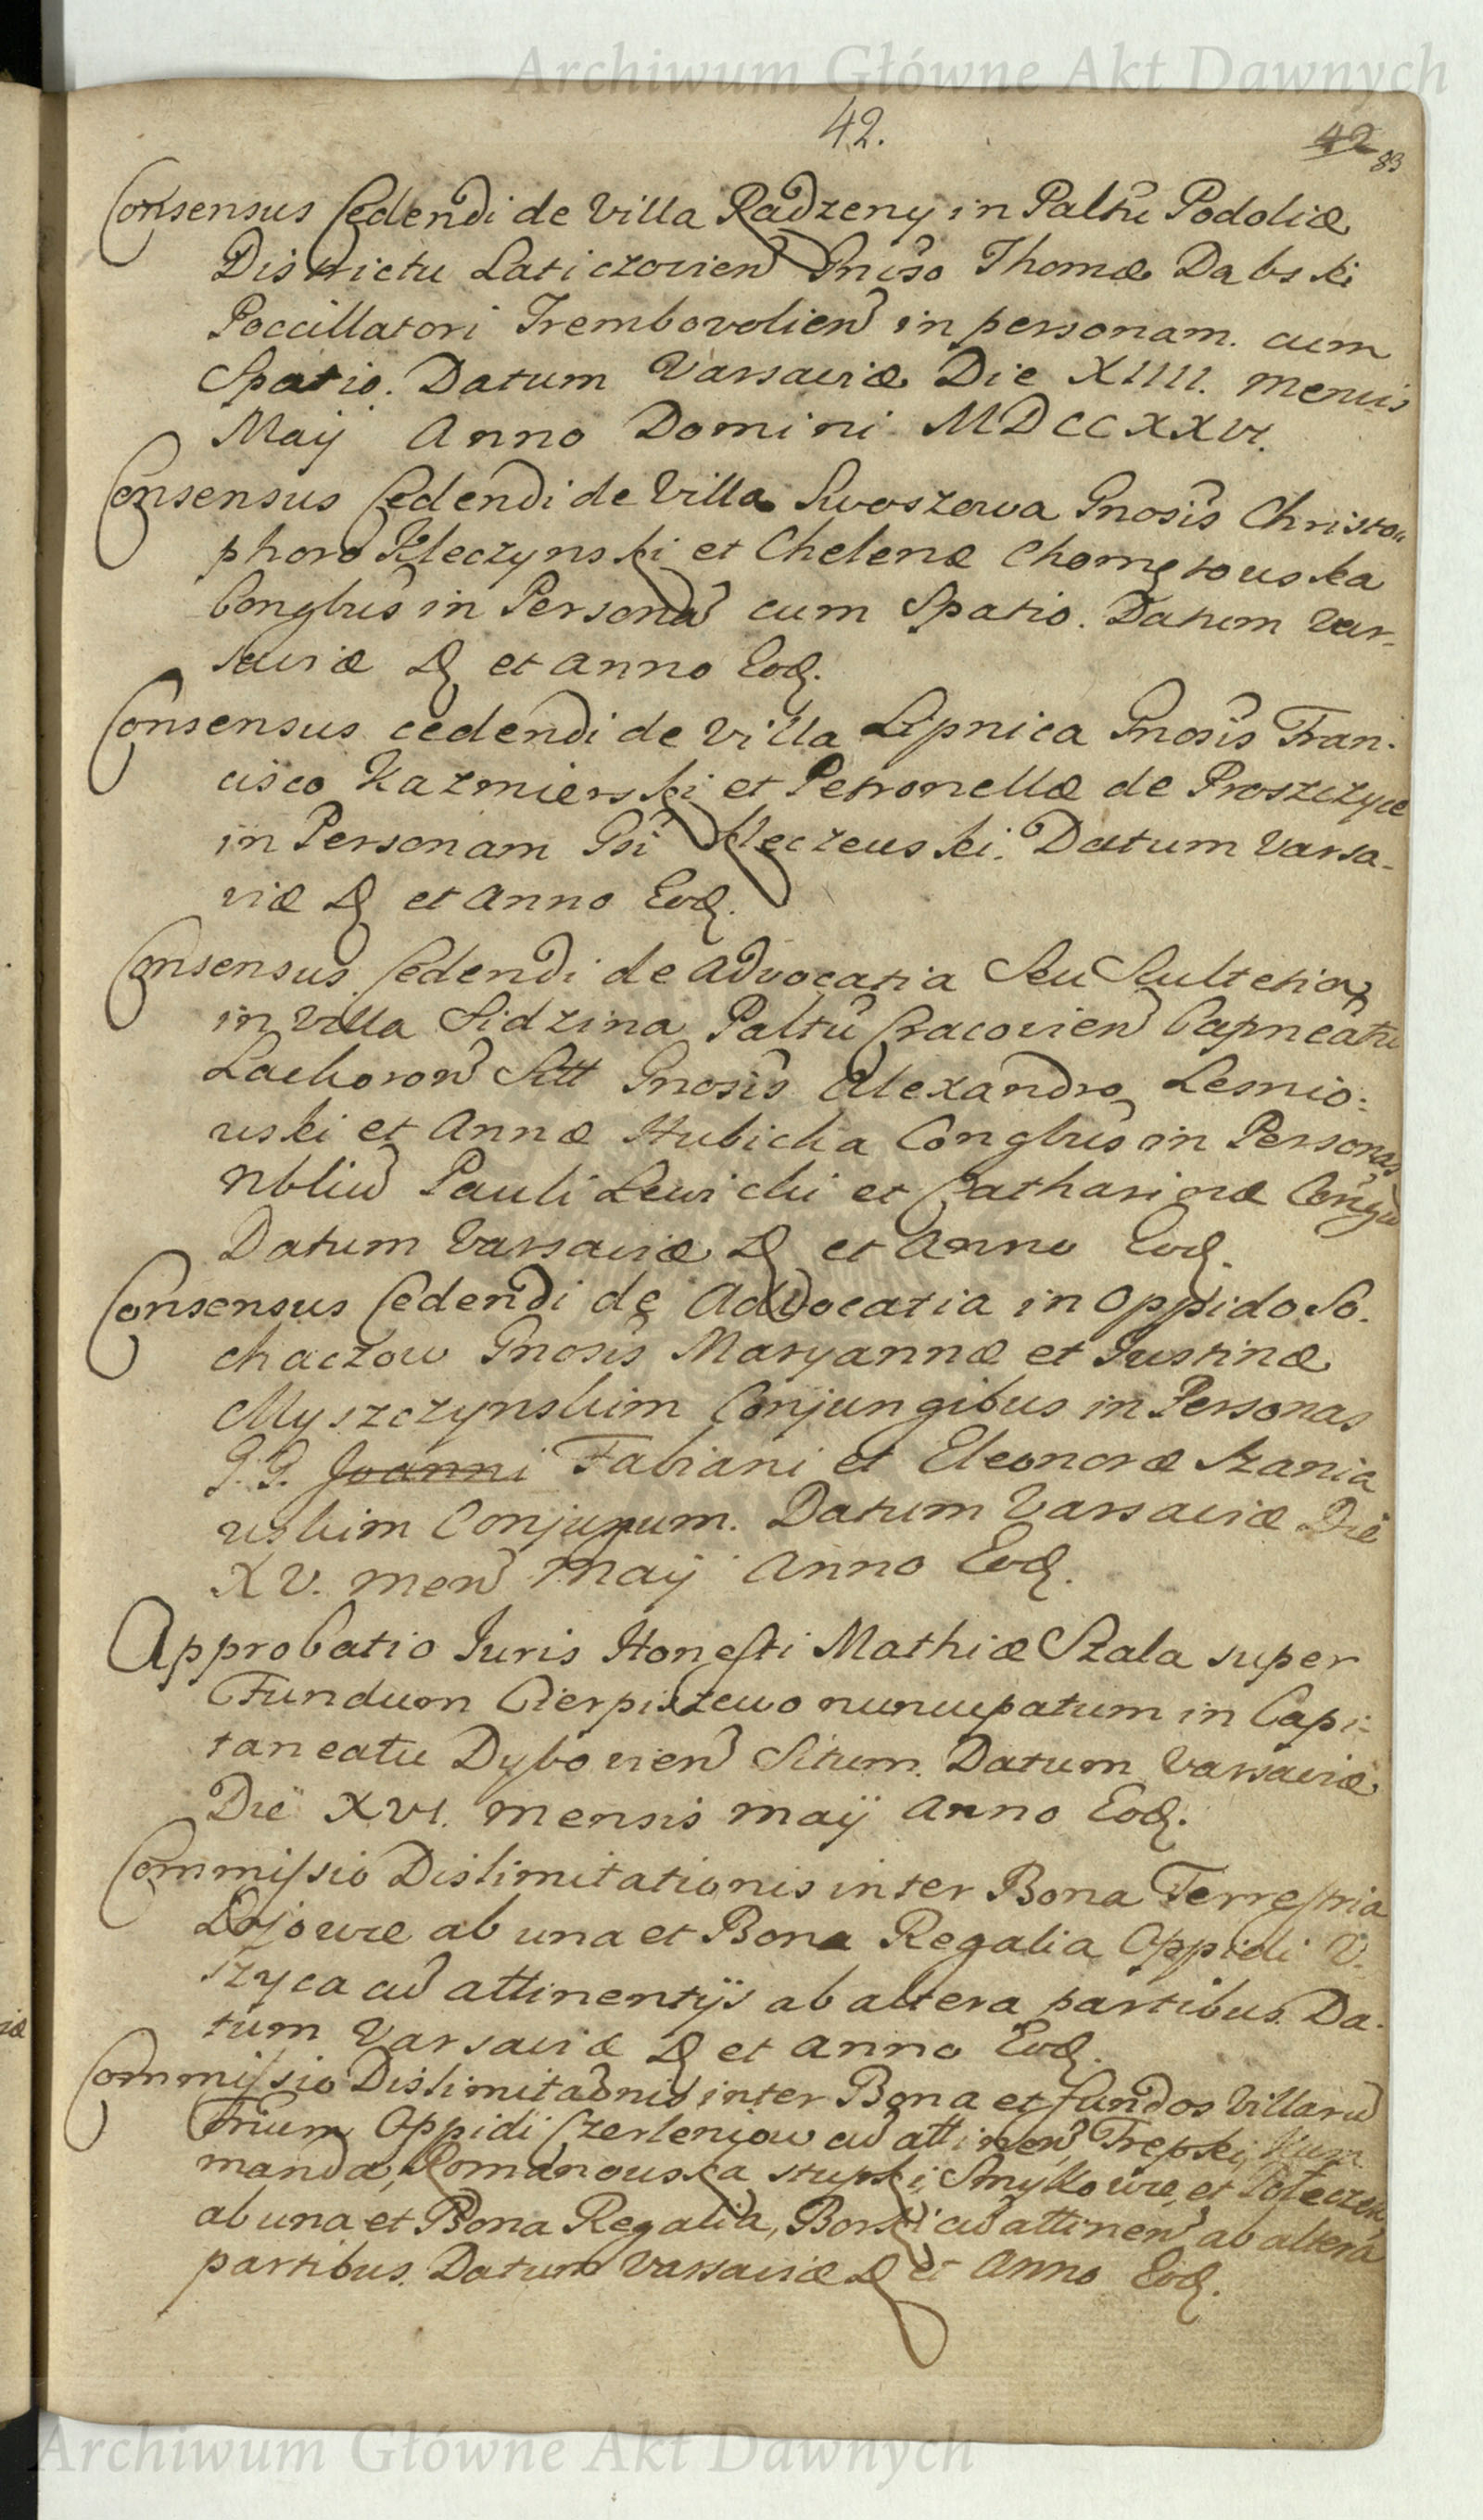 Archiwum Główne Akt Dawnych
42.
42 83
Consensus Cedendi de Villa Radzeny in Palttu Podoliæ
Districtu Laticzovien Gnoso Thomæ Dabski
Poccillatori Trembovolien in personam. cum
Spatio. Datum Varsaviæ Die XIIII. Mensis
Maij Anno Domini MDCCXXVI.
Consensus Cedendi de Villa Swoszowa Gnosis Christo-
phoro Kleczynski et Chelenæ Chomętowska
Conglbus in Persona cum Spatio. Datum Var-
saviæ D et Anno Eod.
Consensus cedendi de Villa Lipnica Gnosis Fran-
cisco Kazmierski et Petronellæ de Proszczyce
in Personam Gsi Kleczewski. Datum Varsa-
viæ D et Anno Eod.
Consensus Cedendi de Advocatia Seu Scultetia
in Villa Sidzina Palttu Cracovien Capneatu
Lachoron Sitt Gnosis Alexandro Lesnio-
wski et Annæ Hubicka Conglbus in Personas
Nbliu Pauli Lewicki et Catharinæ Congu
Datum Varsaviæ D et Anno Eod.
Consensus Cedendi de Advocatia in Oppido So-
chaczow Gnosis Maryannæ et Justinæ
Myszczynskim Conjungibus in Personas
G.G. Joanni Fabiani et Eleonoræ Szania
wskim Conjugum. Datum Varsaviæ Die
XV. men Maij Anno Eod.
Approbatio Juris Honesti Mathiæ Szala super
Fundum Cierpiszewo nuncupatum in Capi-
taneatu Dybovien Situm. Datum Varsaviæ
Die XVI. mensis maij Anno Eod.
Commissio Dislimitationis inter Bona Terrestria
Dojowce ab una et Bona Regalia Oppidi U-
szyca cu attinentijs ab altera partibus. Da-
tum Varsaviæ D et Anno Eod.
Commissio Dislimitaonis inter Bona et fundos Villaru
Trium Oppidi Czerleniow cu attinen Trepki,
manda, Romanowska stupki, Smykowce, et
ab una et Bona Regalia, Borki cu attinen ab altera
partibus. Datum Varsaviæ D et Anno Eod.
Archiwum Główne Akt Dawnych